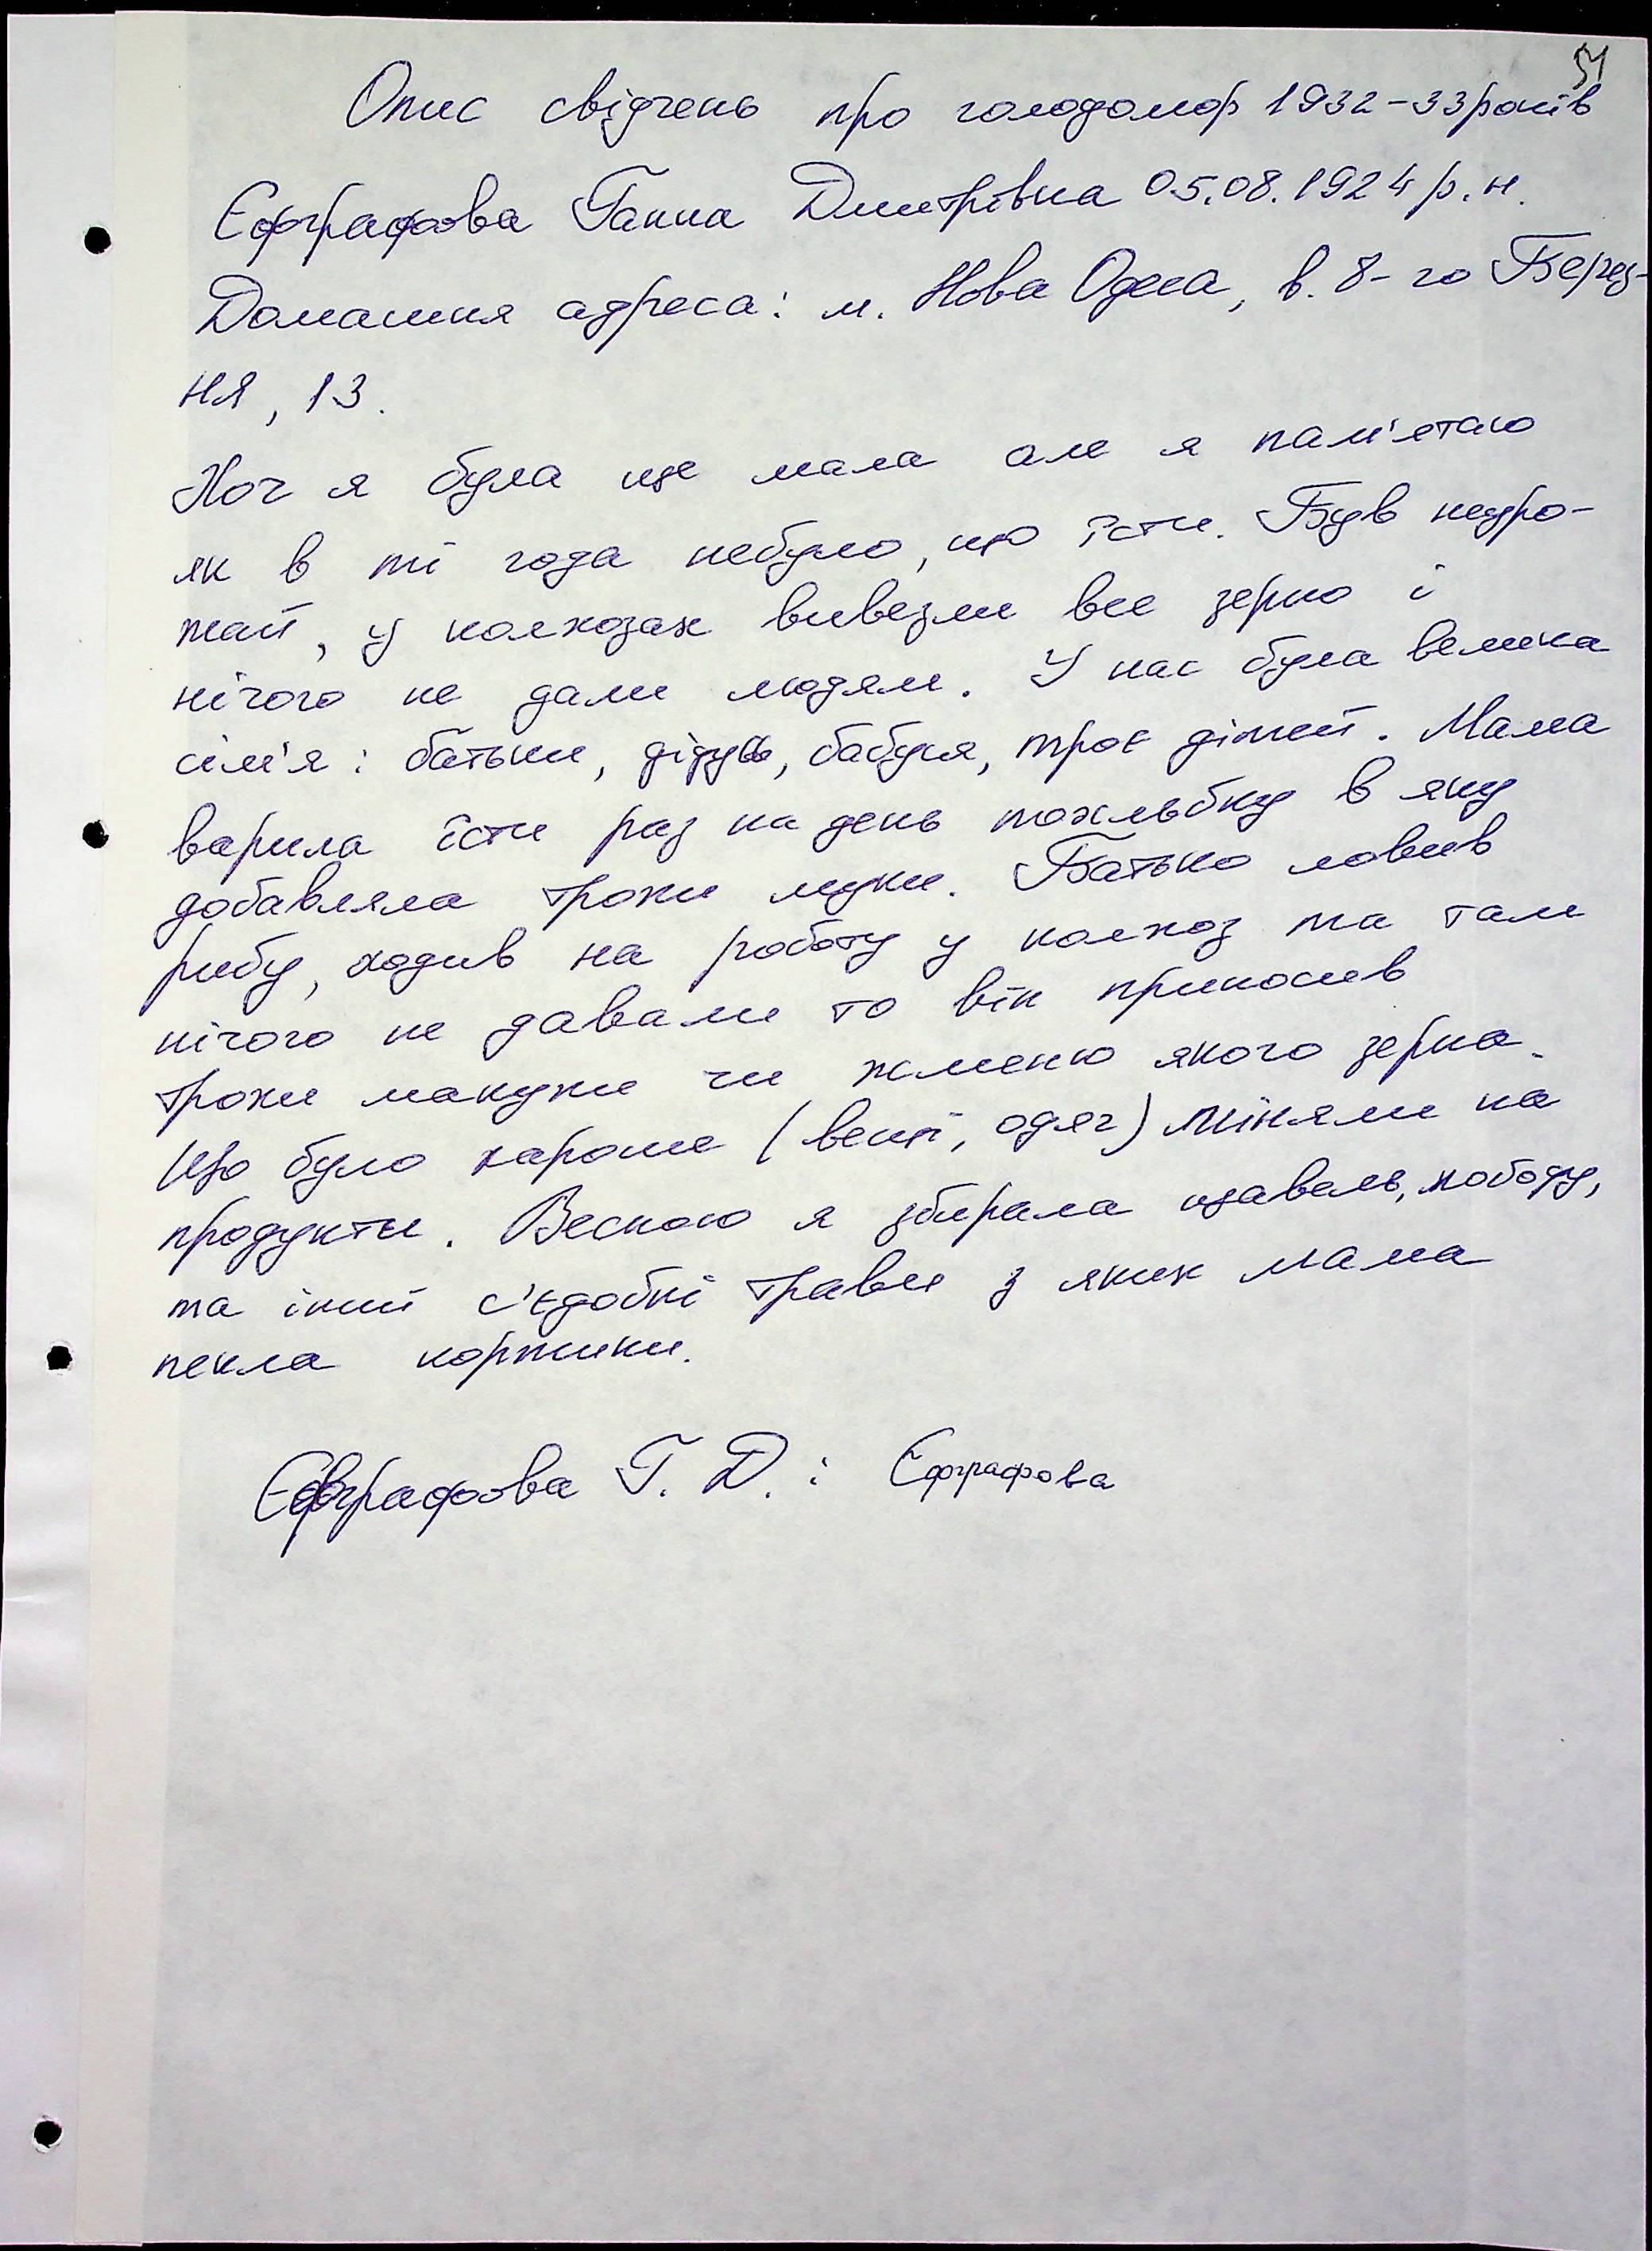 51
Опис свідчень про голодомор 1932-33 років
Єфграфова Ганна Дмитрівна 05.08.1924 р.н.
Домашня адреса: м. Нова Одеса, в. 8-го Берез-
ня, 13.
Хоч я була ще мала але я пам'ятаю
як в ті года небуло, що їсти. Був неуро-
жай, у колхозах вивезли все зерно і
нічого не дали людям. У нас була велика
сім'я: батьки, дідусь, бабуся, троє дітей. Мама
варила їсти раз на день похльобку в яку
добавляла трохи муки. Батько ловив
рибу, ходив на роботу у колхоз та там
нічого не давали то він приносив
трохи макухи чи жменю якого зерна.
Що було хароше (вещі, одяг) міняли на
продукти. Весною я збирала щавель, лободу,
та інші с'єдобні трави з яких мама
пекла коржики.
Єфграфова Г. Д.: Єфграфова